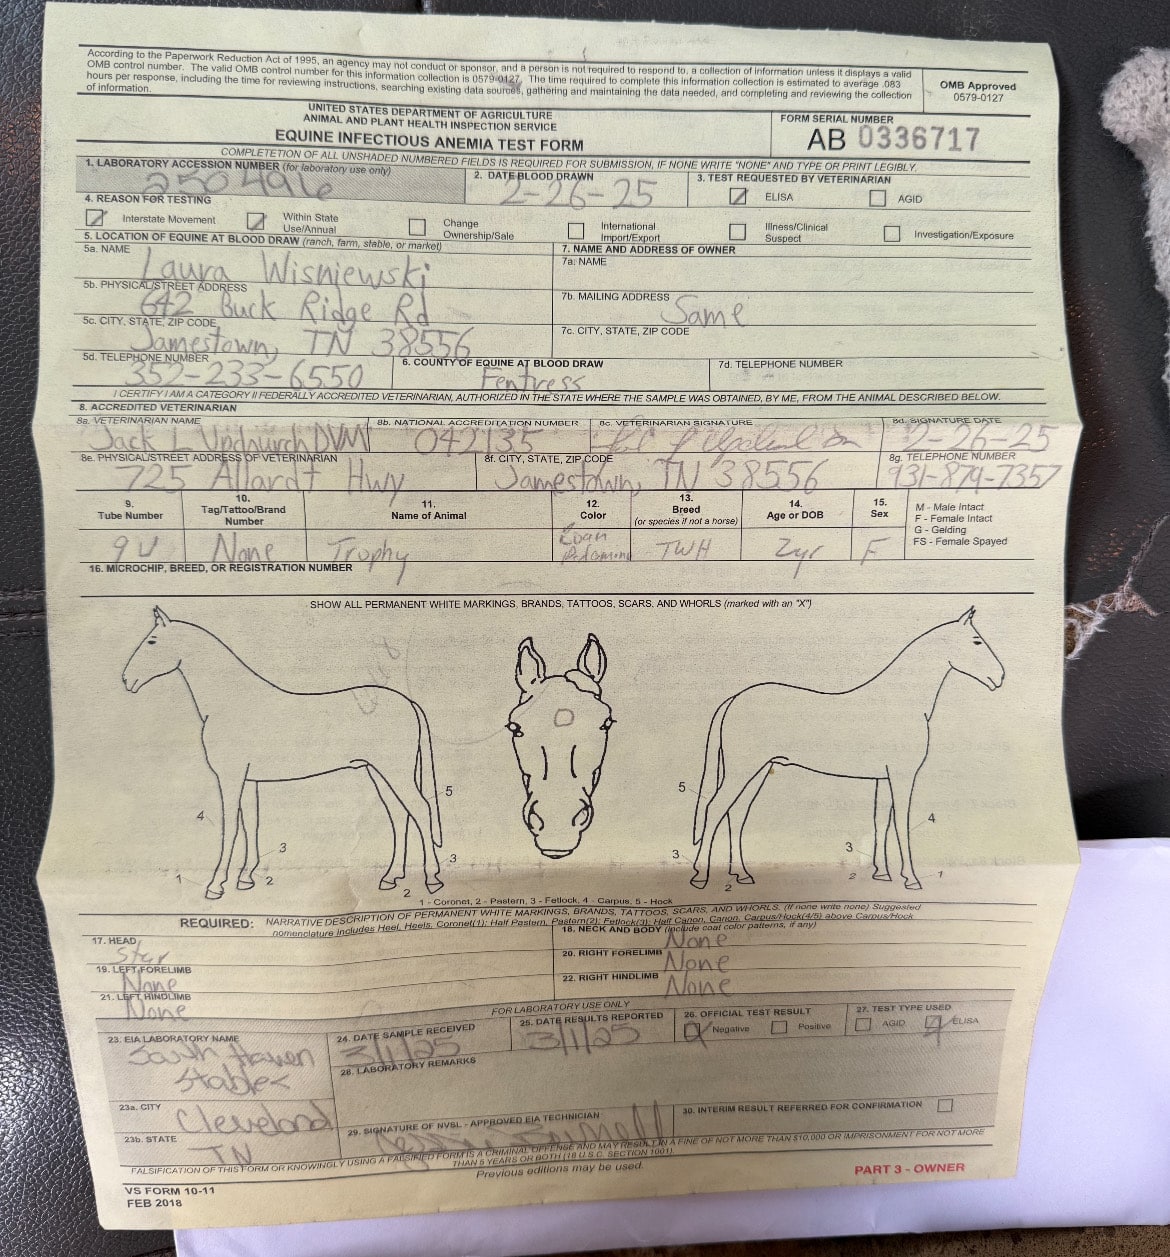 According to the Paperwork Reduction Act of 1995, an agency may not conduct or sponsor, and a person is not required to respond to, a collection of information unless it displays a valid
OMB control number. The valid OMB control number for this information collection is 0579-0127. The time required to complete this information collection is estimated to average .083
hours per response, including the time for reviewing instructions, searching existing data sources, gathering and maintaining the data needed, and completing and reviewing the collection
of information.
OMB Approved
0579-0127
UNITED STATES DEPARTMENT OF AGRICULTURE
ANIMAL AND PLANT HEALTH INSPECTION SERVICE
EQUINE INFECTIOUS ANEMIA TEST FORM
FORM SERIAL NUMBER
AB 0336717
COMPLETETION OF ALL UNSHADED NUMBERED FIELDS IS REQUIRED FOR SUBMISSION, IF NONE WRITE "NONE" AND TYPE OR PRINT LEGIBLY.
1. LABORATORY ACCESSION NUMBER (for laboratory use only)
2504916
2. DATE BLOOD DRAWN
2-26-25
3. TEST REQUESTED BY VETERINARIAN
ELISA
AGID
4. REASON FOR TESTING
Interstate Movement
Within State
Use/Annual
Change
Ownership/Sale
International
Import/Export
Illness/Clinical
Suspect
Investigation/Exposure
5. LOCATION OF EQUINE AT BLOOD DRAW (ranch, farm, stable, or market)
5a. NAME
Laura Wisniewski
5b. PHYSICAL/STREET ADDRESS
642 Buck Ridge Rd
5c. CITY, STATE, ZIP CODE
Jamestown, TN 38556
5d. TELEPHONE NUMBER
352-233-6550
6. COUNTY OF EQUINE AT BLOOD DRAW
Fentress
7. NAME AND ADDRESS OF OWNER
7a. NAME
7b. MAILING ADDRESS
Same
7c. CITY, STATE, ZIP CODE
7d. TELEPHONE NUMBER
I CERTIFY I AM A CATEGORY II FEDERALLY ACCREDITED VETERINARIAN, AUTHORIZED IN THE STATE WHERE THE SAMPLE WAS OBTAINED, BY ME, FROM THE ANIMAL DESCRIBED BELOW.
8. ACCREDITED VETERINARIAN
8a. VETERINARIAN NAME
Jack L DVM
8b. NATIONAL ACCREDITATION NUMBER
042135
8c. VETERINARIAN SIGNATURE
8d. SIGNATURE DATE
2-26-25
8e. PHYSICAL/STREET ADDRESS OF VETERINARIAN
725 Allardt Hwy
8f. CITY, STATE, ZIP CODE
Jamestown, TN 38556
8g. TELEPHONE NUMBER
931-879-7357
9.
Tube Number
10.
Tag/Tattoo/Brand
Number
11.
Name of Animal
12.
Color
13.
Breed
(or species if not a horse)
14.
Age or DOB
15.
Sex
M - Male Intact
F - Female Intact
G - Gelding
FS - Female Spayed
9U
None
Trophy
Roan
TWH
2yr
F
16. MICROCHIP, BREED, OR REGISTRATION NUMBER
SHOW ALL PERMANENT WHITE MARKINGS, BRANDS, TATTOOS, SCARS, AND WHORLS (marked with an "X")
5
4
3
1
2
3
2
5
4
3
3
2
2
1
1 - Coronet, 2 - Pastern, 3 - Fetlock, 4 - Carpus, 5 - Hock
REQUIRED: NARRATIVE DESCRIPTION OF PERMANENT WHITE MARKINGS, BRANDS, TATTOOS, SCARS, AND WHORLS. (If none write none) Suggested
nomenclature includes Heel, Heels, Coronet(1); Half Pastern, Pastern(2); Fetlock(3); Half Canon, Canon, Carpus/Hock(4/5) above Carpus/Hock
17. HEAD
Star
18. NECK AND BODY (include coat color patterns, if any)
None
19. LEFT FORELIMB
None
20. RIGHT FORELIMB
None
21. LEFT HINDLIMB
None
22. RIGHT HINDLIMB
None
FOR LABORATORY USE ONLY
23. EIA LABORATORY NAME
South Haven
Stables
23a. CITY
Cleveland
23b. STATE
TN
24. DATE SAMPLE RECEIVED
3/1/25
25. DATE RESULTS REPORTED
3/1/25
26. OFFICIAL TEST RESULT
Negative
Positive
27. TEST TYPE USED
AGID
ELISA
28. LABORATORY REMARKS
29. SIGNATURE OF NVSL - APPROVED EIA TECHNICIAN
30. INTERIM RESULT REFERRED FOR CONFIRMATION
FALSIFICATION OF THIS FORM OR KNOWINGLY USING A FALSIFIED FORM IS A CRIMINAL OFFENSE AND MAY RESULT IN A FINE OF NOT MORE THAN $10,000 OR IMPRISONMENT FOR NOT MORE
THAN 5 YEARS OR BOTH (18 U.S.C. SECTION 1001).
Previous editions may be used.
PART 3 - OWNER
VS FORM 10-11
FEB 2018